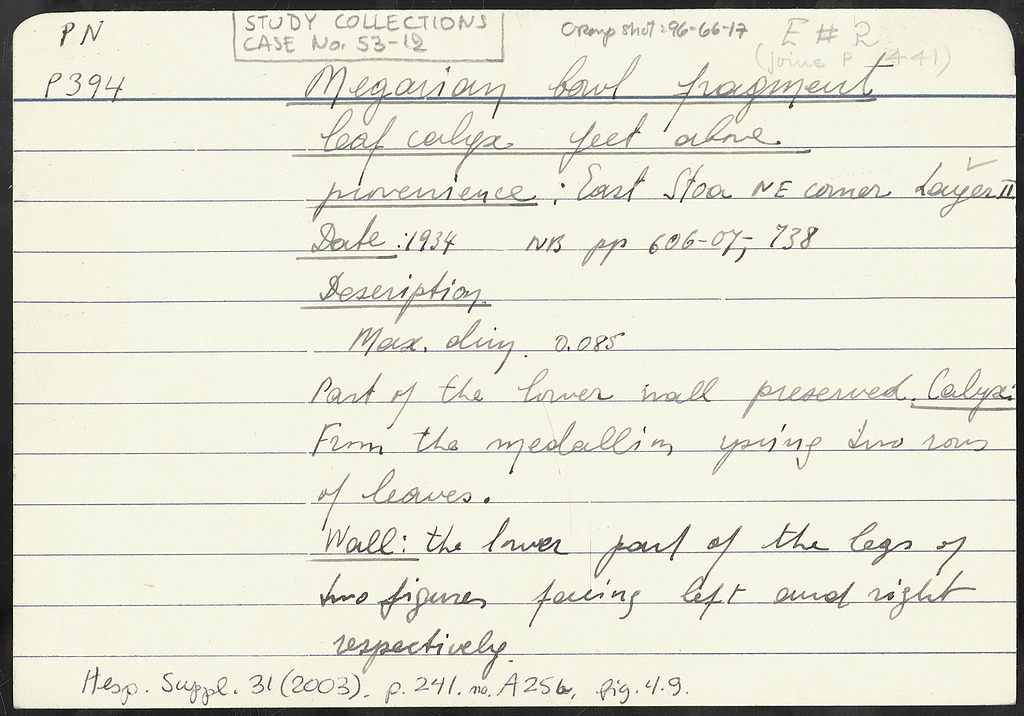 PN
STUDY COLLECTIONS
CASE No. 53-12
Group shot: 96-66-17
E # 2
(joins P 441)
P394
Megarian bowl fragment
leaf calyx feet above
provenience : East Stoa NE corner Layer II
Date : 1934 NB pp 606-07, 738
Description
Max. dim. 0.085
Part of the lower wall preserved. Calyx:
From the medallion spring two rows
of leaves.
Wall: the lower part of the legs of
two figures facing left and right
respectively.
Hesp. Suppl. 31 (2003). p. 241. no. A256, fig. 4.9.